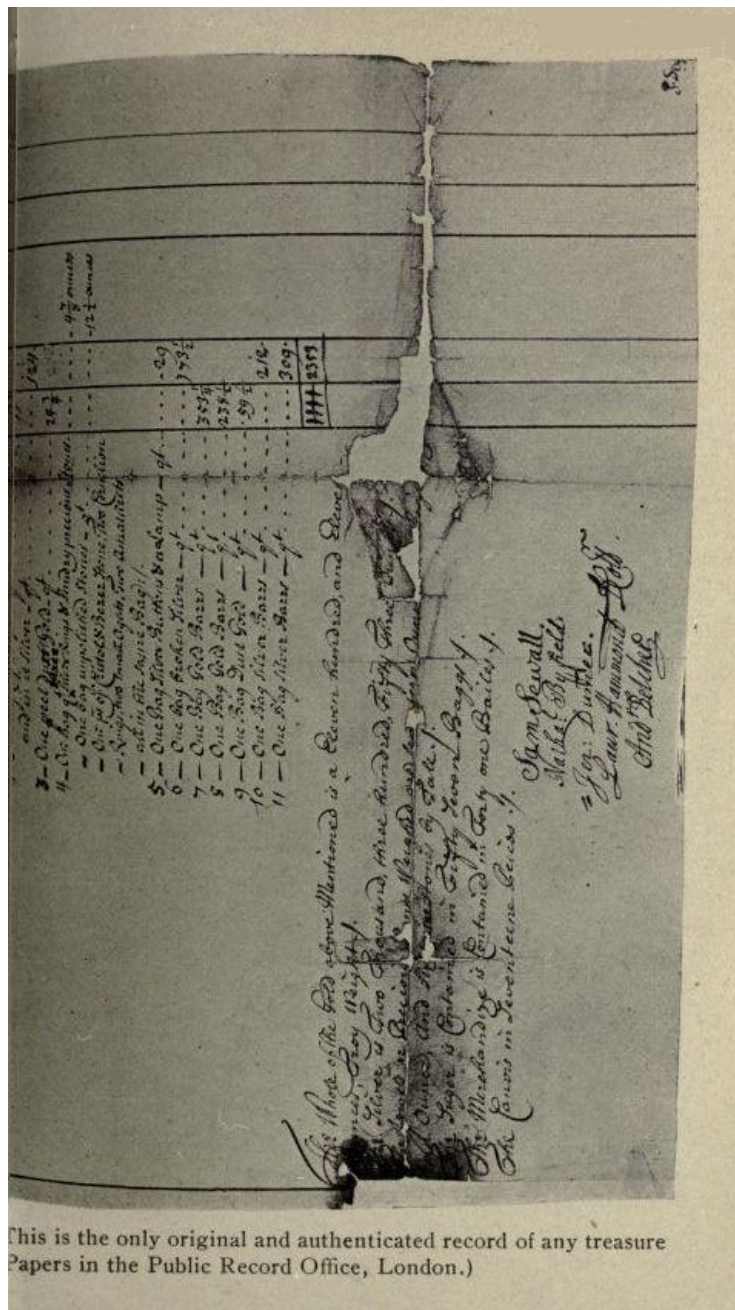 124
and tin is Silver - qt
3 - One p Gold - qt 24 3/4
4 - One bag Silver Rings & Sundry precious Stones - - 4 7/8 ounces
- One bag unpolished Stones - qt - 12 1/2 ounces
- One ps of Cristol & Bezer Stone, Two Cornelion
- Rings, two Small Agats, Two Amathests
- all in the Same Bag
5 - One Bag Silver Buttons & a Lamp - qt 29
6 - One bag broken Silver - qt 173 1/2
7 - One Bag Gold Barrs - qt 353 1/4
8 - One Bag Gold Barrs - qt 238 1/2
9 - One Bag Dust Gold - qt 59 1/2
10 - One Bag Silver Barrs - qt 212
11 - One Bag Silver Barrs - qt 309
1111 2353
The Whole of the Gold above Mentioned is Eleven hundred, and Eleven
ounces, Troy Weight
The Silver is Two Thousand, three hundred, Fifty Three
Ounces, And
The Sugar is Contained in Fifty Seven Baggs
The Merchandize is Contained in Forty one Bailes
The Canvis in Seventeene Peices
Sam Sewall.
Nathal Byfield
Jer: Dummer.
Laur. Hammond
And Belcher
This is the only original and authenticated record of any treasure
Papers in the Public Record Office, London.)